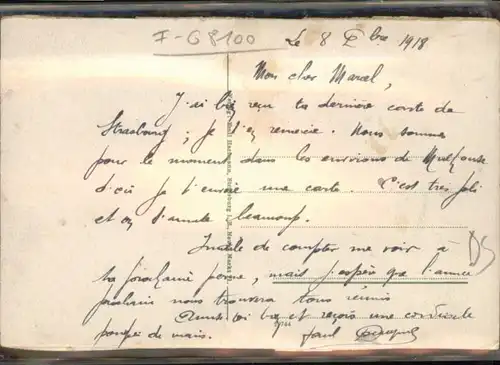 F-68100
Le 8 Xbre 1918
Mon cher Marcel,
J'ai bien reçu ta dernière carte de
Strasbourg ; je t'en remercie. Nous sommes
pour le moment dans les environs de Mulhouse
d'où je t'envoie une carte. C'est très joli
et on s'amuse beaucoup.
Inutile de compter me voir à
ta prochaine perme, mais j'espère que l'année
prochaine nous trouvera tous réunis
et reçois une cordiale
poignée de mains. Paul